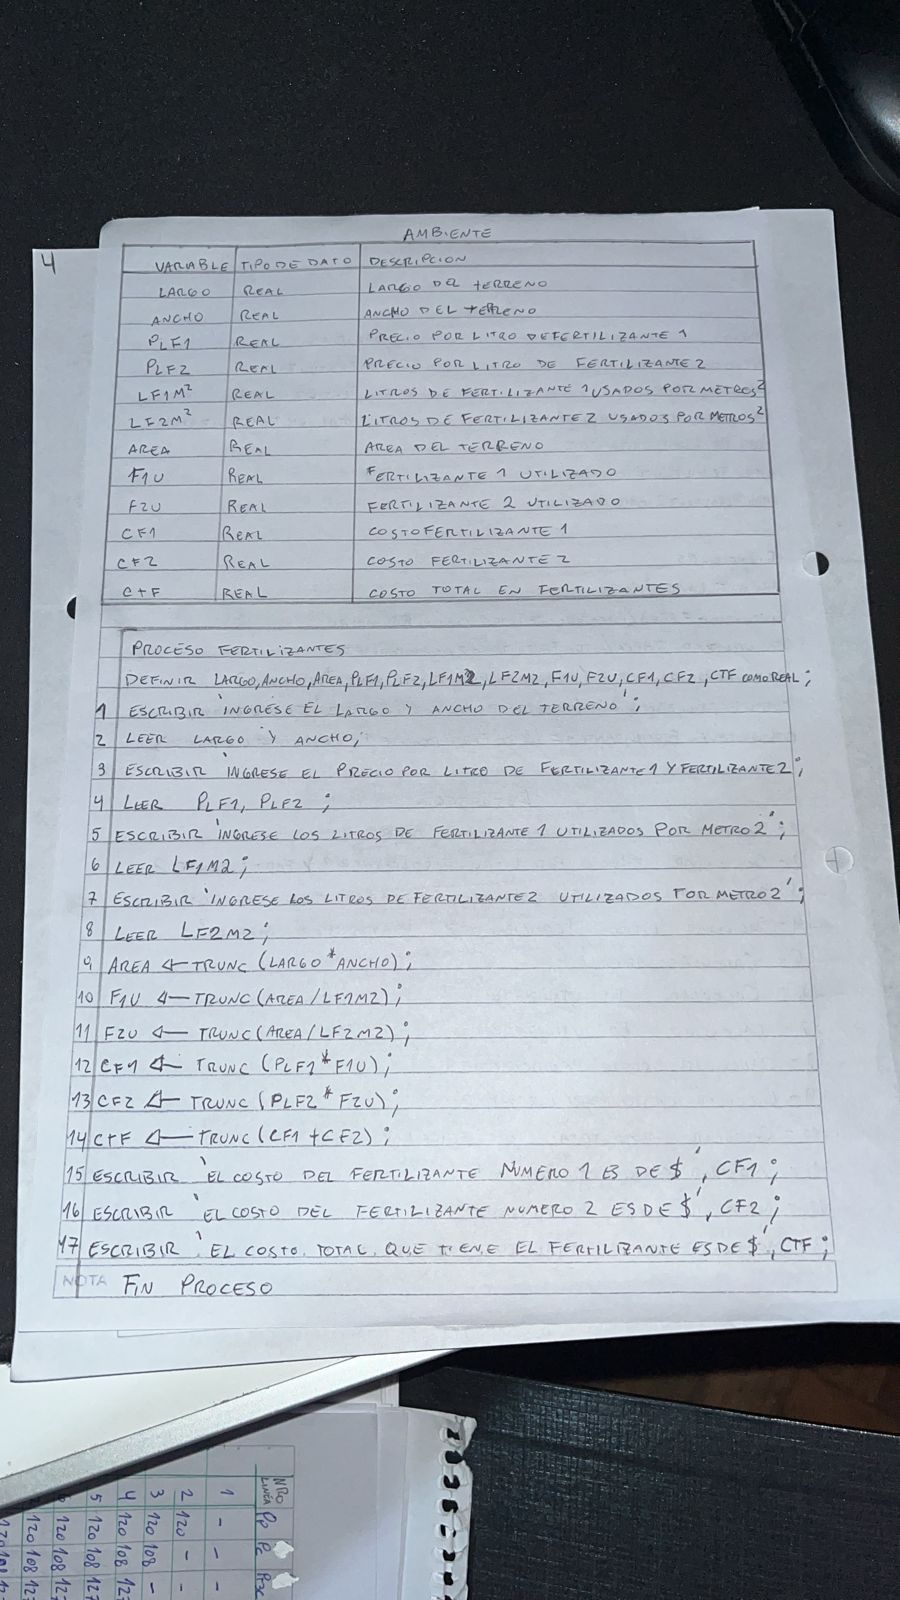 4
AMBIENTE
VARIABLE TIPO DE DATO DESCRIPCION
LARGO REAL LARGO DEL tERRENO
ANCHO REAL ANCHO DEL tERRENO
PLF1 REAL PRECIO POR LITRO DE FERTILIZANTE 1
PLF2 REAL PRECIO POR LITRO DE FERTILIZANTE 2
LF1M² REAL LITROS DE FERTILIZANTE 1 USADOS POR METROS²
LF2M² REAL LITROS DE FERTILIZANTE 2 USADOS POR METROS²
AREA REAL AREA DEL TERRENO
F1U REAL FERTILIZANTE 1 UTILIZADO
F2U REAL FERTILIZANTE 2 UTILIZADO
CF1 REAL COSTO FERTILIZANTE 1
CF2 REAL COSTO FERTILIZANTE 2
CtF REAL COSTO TOTAL EN FERTILIZANTES
PROCESO FERTILIZANTES
DEFINIR LARGO, ANCHO, AREA, PLF1, PLF2, LF1M2, LF2M2, F1U, F2U, CF1, CF2, CTF COMO REAL;
1 ESCRIBIR 'INGRESE EL LARGO Y ANCHO DEL TERRENO';
2 LEER LARGO Y ANCHO;
3 ESCRIBIR 'INGRESE EL PRECIO POR LITRO DE FERTILIZANTE 1 Y FERTILIZANTE 2';
4 LEER PLF1, PLF2;
5 ESCRIBIR 'INGRESE LOS LITROS DE FERTILIZANTE 1 UTILIZADOS POR METRO 2';
6 LEER LF1M2;
7 ESCRIBIR 'INGRESE LOS LITROS DE FERTILIZANTE 2 UTILIZADOS POR METRO 2';
8 LEER LF2M2;
9 AREA ← TRUNC (LARGO * ANCHO);
10 F1U ← TRUNC (AREA / LF1M2);
11 F2U ← TRUNC (AREA / LF2M2);
12 CF1 ← TRUNC (PLF1 * F1U);
13 CF2 ← TRUNC (PLF2 * F2U);
14 CtF ← TRUNC (CF1 + CF2);
15 ESCRIBIR 'EL COSTO DEL FERTILIZANTE NUMERO 1 ES DE $', CF1;
16 ESCRIBIR 'EL COSTO DEL FERTILIZANTE NUMERO 2 ES DE $', CF2;
17 ESCRIBIR 'EL COSTO TOTAL QUE TIENE EL FERTILIZANTE ES DE $', CTF;
NOTA FIN PROCESO
NRO LINEA Pp Pc
1 - -
2 120 -
3 120 108 -
4 120 108
5 120 108